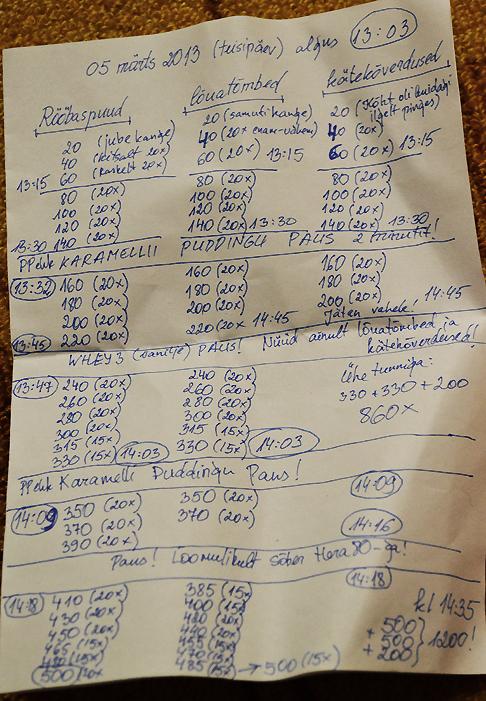 05 märts 2013 (teisipäev) algus 13:03
Rööbaspuud Lõuatõmbed Kätekõverdused
20 (jube kange) 20 (samuti kange) 20 (Kõht oli kuidagi ilgelt pinges)
40 (kitsalt 20x) 40 (20x enam-vähem) 40 (20x)
13:15 60 (raskelt 20x) 60 (20x) 13:15 60 (20x) 13:15
80 (20x) 80 (20x) 80 (20x)
100 (20x) 100 (20x) 100 (20x)
120 (20x) 120 (20x) 120 (20x)
13:30 140 (20x) 140 (20x) 13:30 140 (20x) 13:30
KARAMELLII PUDDINGU PAUS 2 minutit!
13:32 160 (20x) 160 (20x) 160 (20x)
180 (20x) 180 (20x) 180 (20x)
200 (20x) 200 (20x) 200 (20x)
13:45 220 (20x) 220 (20x) 14:45 Jäten vahele, 14:45
WHEY3 (vanilje) PAUS! Nüüd ainult lõuatõmbed ja kätekõverdused!
13:47 240 (20x) 240 (20x) Ühe tunniga:
260 (20x) 260 (20x) 330 + 330 + 200
280 (20x) 280 (20x) 860x
300 (20x) 300 (20x)
315 (15x) 315 (15x)
330 (15x) 14:03 330 (15x) 14:03
Karamelli Puddingu Paus!
14:09
14:09 350 (20x) 350 (20x)
370 (20x) 370 (20x) 14:16
390 (20x)
Paus! Loomulikult sõber Hera 80-ga!
14:18
14:18 410 (20x) 385 (15x) kl 14:35
430 (20x) 400 (15x)
450 (20x) 420 (20x) 500
465 (15x) + 500 1200!
+ 200
500 485 (15x) → 500 (15x)